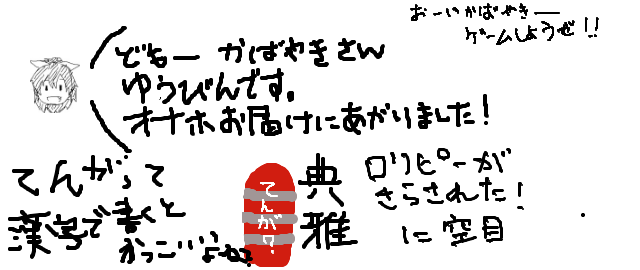 おーいかばやきー
ゲームしようぜ!!
どもー かばやきさん
ゆうびんです。
オナホお届けにあがりました!
てんがって
漢字で書くと
かっこいいよね?
てんがワ.
典雅
ロリピーが
さらされた!
に空目